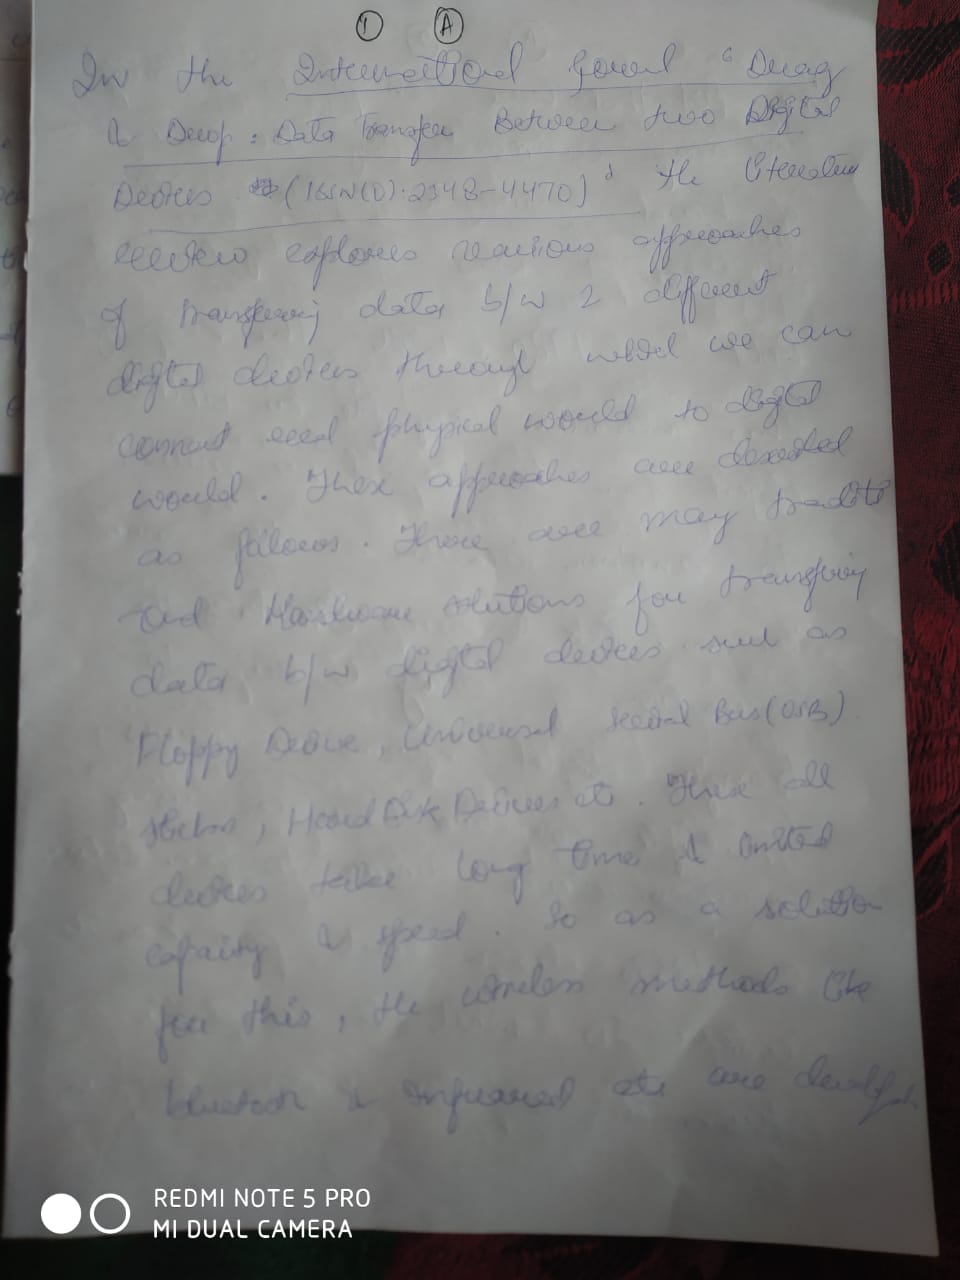 1 A
In the International Jounal "Drag
& Drop: Data Transfer Between two Digital
Devices (ISSN(O):2348-4470)" the literature
review explores various approaches
of transfering data b/w 2 different
digital devices through which we can
connect real physical would to digital
would. These approaches are described
as follows. There are may traditi
onal Hardware solutions for transfering
data b/w digital devices such as
Floppy Device, Universal Serial Bus (USB)
sticks, Hard Disk Devices etc. These all
devices take long time & limited
capacity & speed. So as a solution
for this, the wireless methods like
bluetooh & Infrared etc are develop
REDMI NOTE 5 PRO
MI DUAL CAMERA